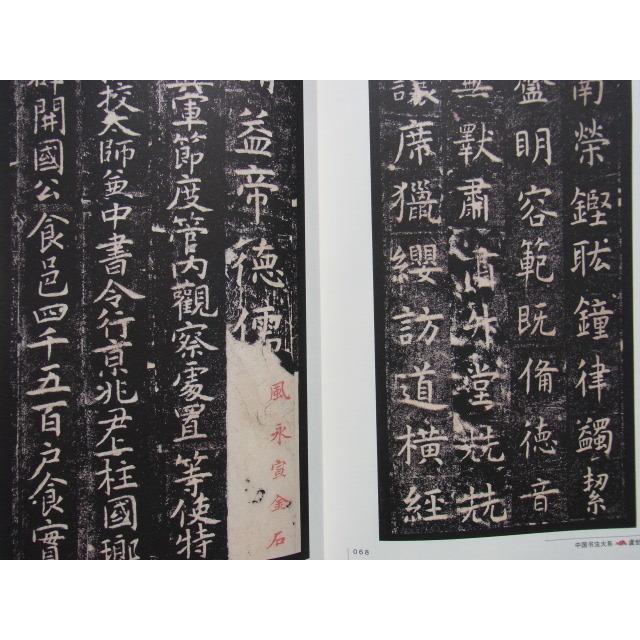 南榮鏗耾鐘律蠲絜
明容範既備德音
無斁肅肅升堂兢兢
讓席獵纓訪道橫經
益帝德儒風永宣金石
軍節度管内觀察處置等使特
校太師兼中書令行京兆尹上柱國瑯
開國公食邑四千五百戶食實
068
中国书法大系
虞世